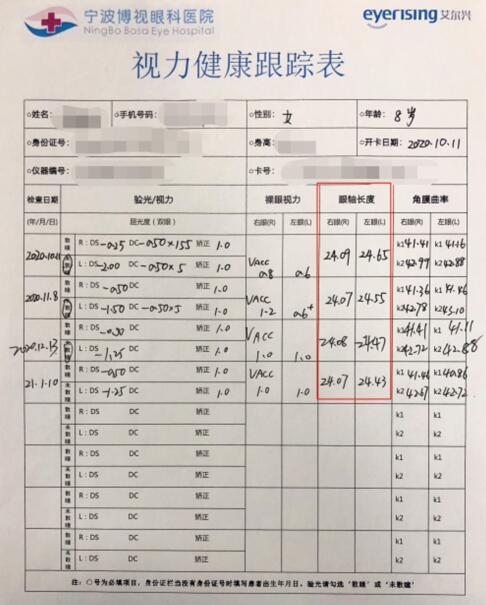 宁波博视眼科医院
NingBo Bosa Eye Hospital
eyerising艾尔兴
视力健康跟踪表
○姓名: ○手机号码: ○性别: 女 ○年龄: 8岁
○身份证号: ○身高: ○开卡日期: 2020.10.11
○仪器编号: ○卡号:
检查日期 验光/视力 裸眼视力 眼轴长度 角膜曲率
(年/月/日) 屈光度(双眼) 右眼(R) 左眼(L) 右眼(R) 左眼(L) 右眼(R) 左眼(L)
2020.10.11 散瞳 R:DS -0.25 DC -0.50×155 矫正 1.0 VACC 24.09 24.65 k1 41.41 k1 41.16
未散瞳 L:DS -2.00 DC -0.50×5 矫正 1.0 0.8 0.6 k2 42.99 k2 42.88
2020.11.8 散瞳 R:DS -0.50 DC 矫正 1.0 VACC 24.07 24.55 k1 41.36
未散瞳 L:DS -1.50 DC -0.50×5 矫正 1.0 1.2 0.6+ k2 42.78 k2 43.10
2020.12.13 散瞳 R:DS -0.50 DC 矫正 VACC 24.08 24.47 k1 41.41 k1 41.11
未散瞳 L:DS -1.25 DC 矫正 1.0 1.0 1.0 k2 42.72 k2 42.88
21.1.10 散瞳 R:DS -0.50 DC 矫正 1.0 VACC 24.07 24.43 k1 41.46 k1 40.86
未散瞳 L:DS -1.25 DC 矫正 1.0 1.0 1.0 k2 42.67 k2 42.72
散瞳 R:DS DC 矫正 k1 k1
未散瞳 L:DS DC 矫正 k2 k2
散瞳 R:DS DC 矫正 k1 k1
未散瞳 L:DS DC 矫正 k2 k2
散瞳 R:DS DC 矫正 k1 k1
未散瞳 L:DS DC 矫正 k2 k2
散瞳 R:DS DC 矫正 k1 k1
未散瞳 L:DS DC 矫正 k2 k2
注:○号为必填项目,身份证栏当没有身份证号时填写患者出生年月日。验光请勾选'散瞳'或'未散瞳'